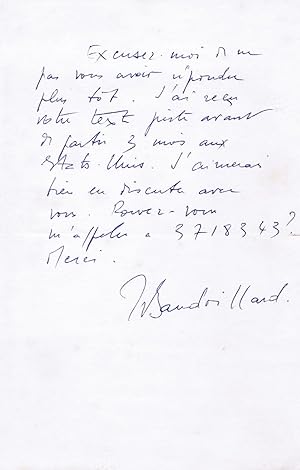 Excusez-moi de ne
pas vous avoir répondu
plus tôt. J'ai reçu
votre text juste avant
de partir 3 mois aux
Etats-Unis. J'aimerai
bien en discuter avec
vous. Pouvez-vous
m'appeler a 3718343?
Merci.
JBaudrillard.